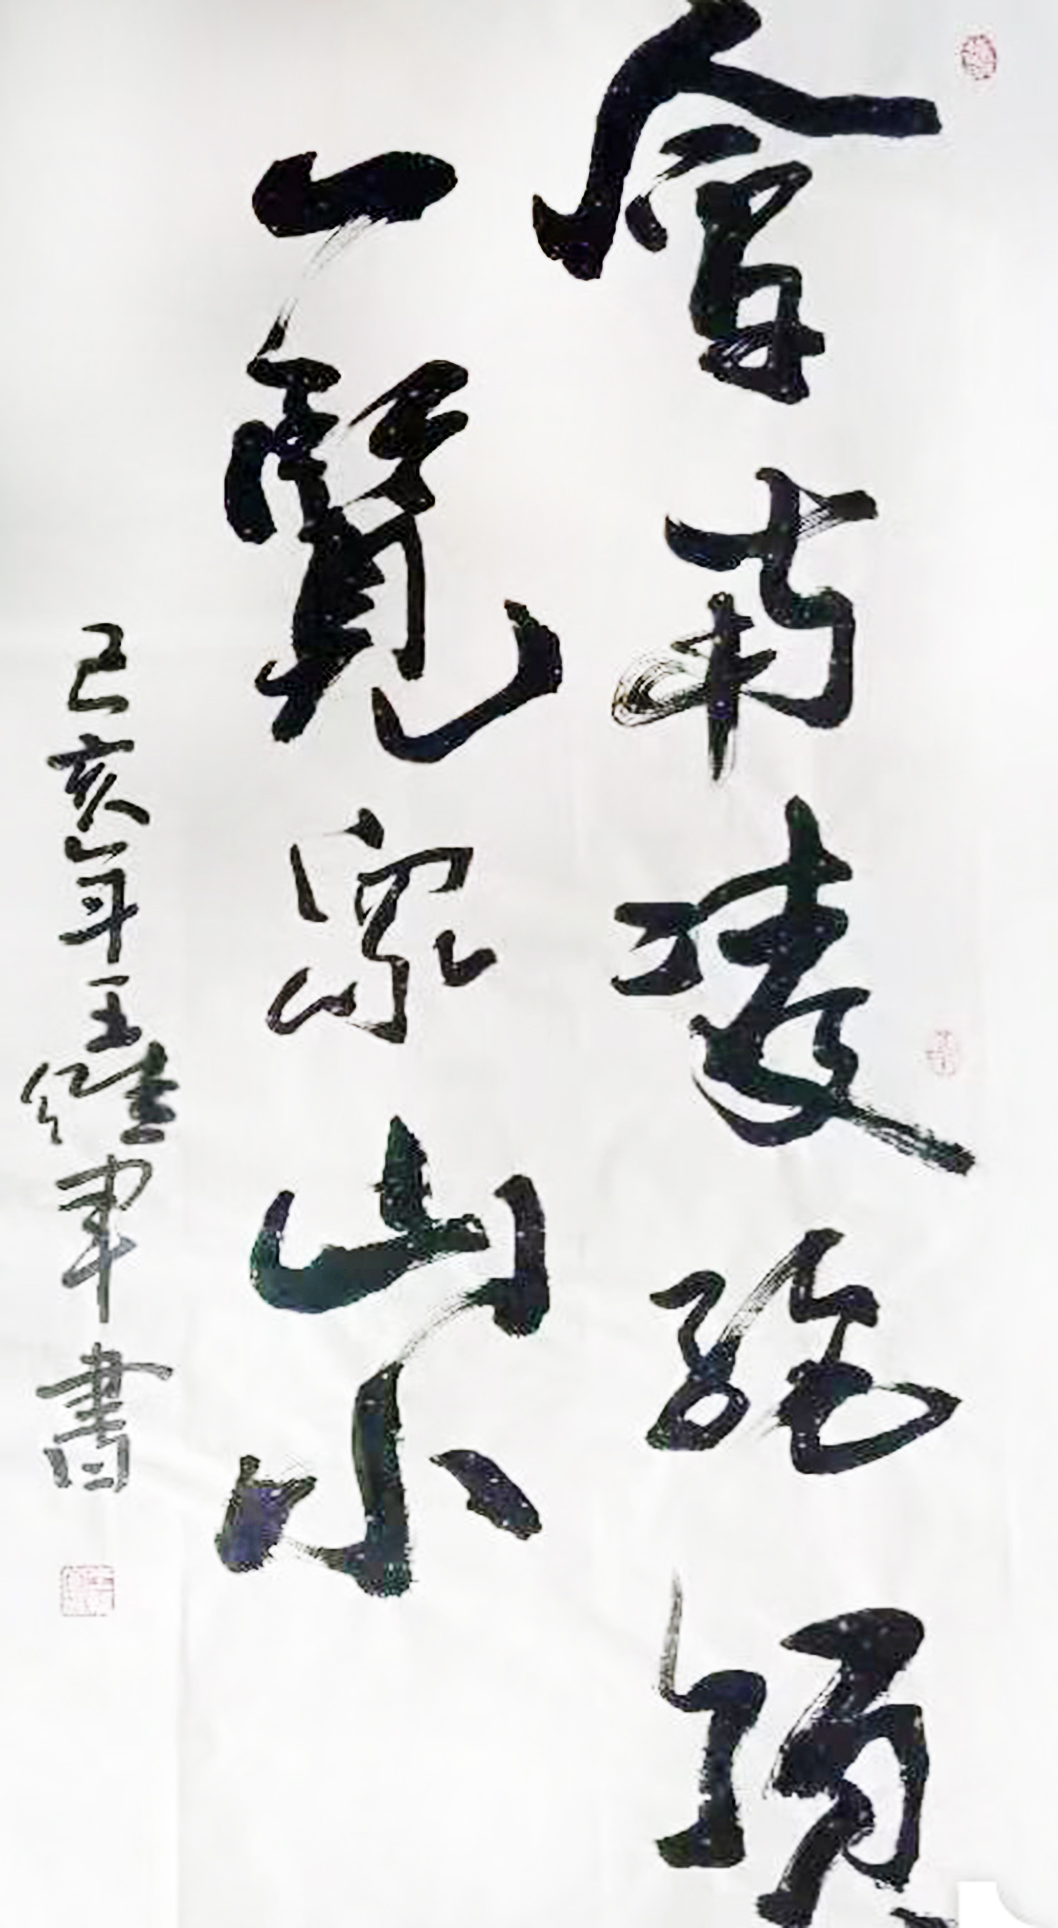 會當凌絕頂
一覽眾山小
己亥年王軍書